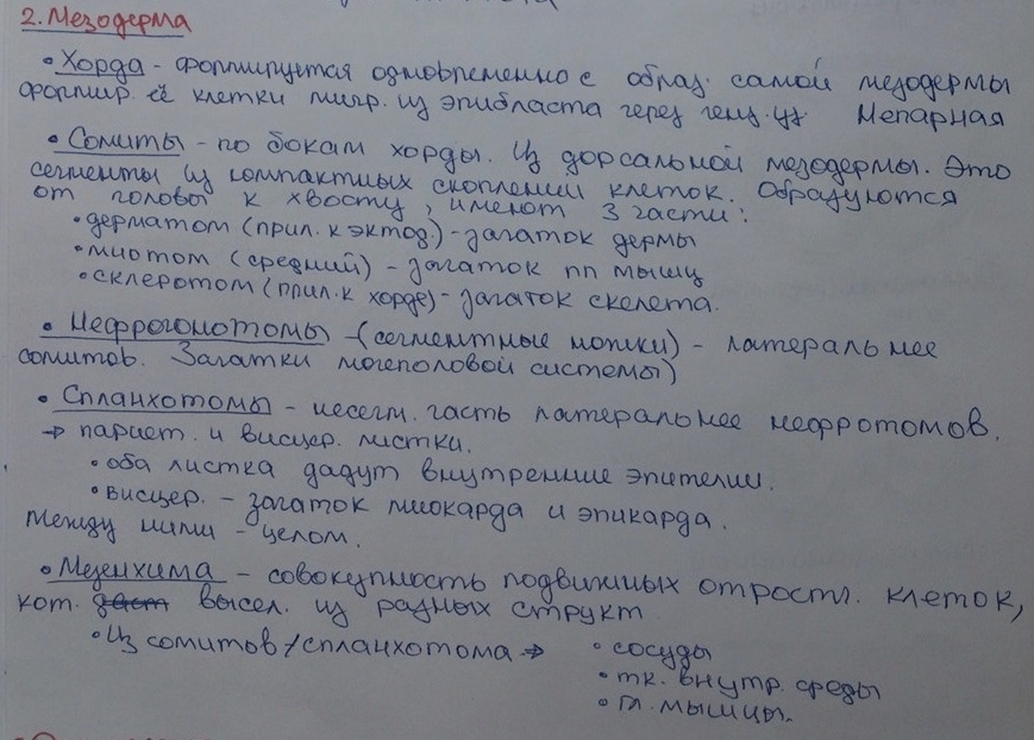 2. Мезодерма
• Хорда - формируется одновременно с образ. самой мезодермы
формир. её клетки мигр. из эпибласта через генз. уз. Непарная
• Сомиты - по бокам хорды. Из дорсальной мезодермы. Это
сегменты из компактных скоплений клеток. Образуются
от головы к хвосту, имеют 3 части:
• дерматом (прил. к эктод.) - зачаток дермы
• миотом (средний) - зачаток пп мышц
• склеротом (прил. к хорде) - зачаток скелета.
• Нефрогонотомы - (сегментные ножки) - латеральнее
сомитов. Зачатки мочеполовой системы)
• Спланхотомы - несегм. часть латеральнее нефротомов.
→ париет. и висцер. листки.
• оба листка дадут внутренние эпителии.
• висцер. - зачаток миокарда и эпикарда.
Между ними - целом.
• Мезенхима - совокупность подвижных отростч. клеток,
кот. даст высел. из разных структ
• Из сомитов/спланхотома → • сосуды
• тк. внутр. среды
• гл. мышцы.